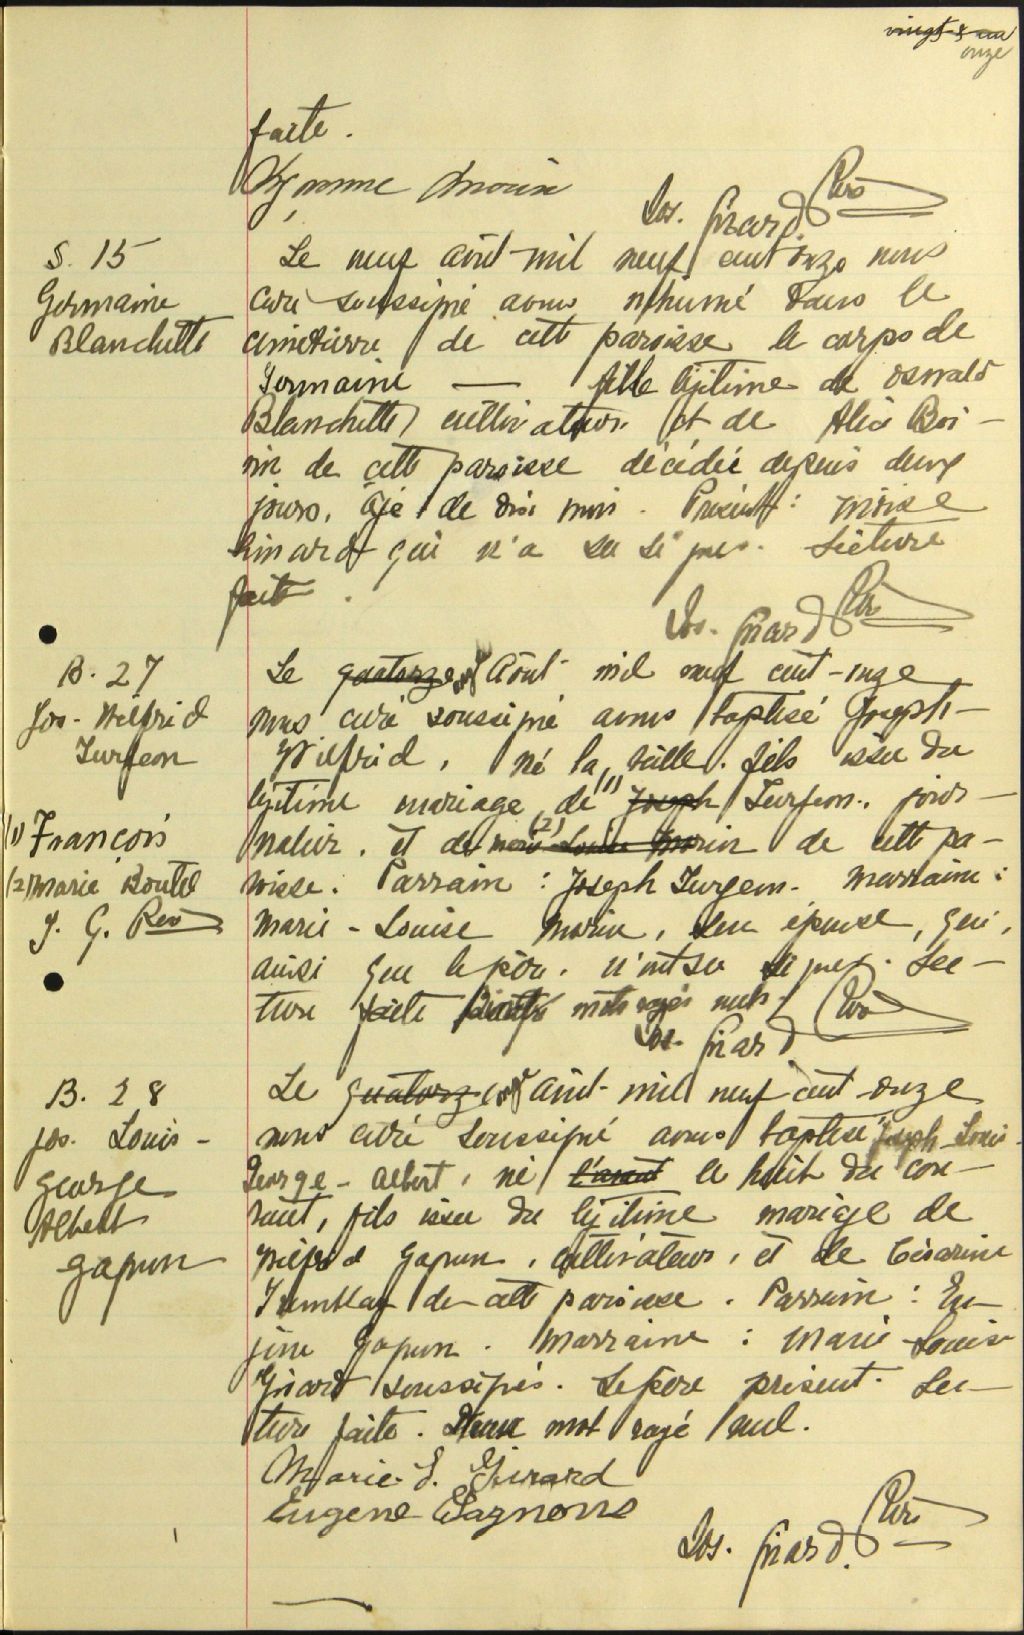 vingt & un
onze
faite.
Jos. Girard Ptre
S. 15
Germaine
Blanchette
Le neuf août mil neuf cent onze nous
curé soussigné avons inhumé dans le
cimetierre de cette paroisse le corps de
Germaine — fille légitime de Oswald
Blanchette, cultivateur et de Alice Boi-
vin de cette paroisse décédée depuis deux
jours, âgé de dix mois. Présent: Moïse
Simard qui n'a su signer. Lecture
faite.
Jos. Girard Ptre
B. 27
Jos-Wilfrid
Turgeon
(1) François
(2) Marie Boutel
J. G. Ptre
Le quatorze août mil neuf cent-onze
nous curé soussigné avons baptisé Joseph-
Wilfrid, né la veille. fils issu du
légitime mariage de (1) Joseph Turgeon, jour-
nalier, et de (2) Marie-Louise Morin de cette pa-
roisse. Parrain: Joseph Turgeon. Marraine:
Marie-Louise Morin, son épouse, qui,
ainsi que le père, n'ont su signer. Lec-
ture faite mots rayés nuls.
Jos. Girard Ptre
B. 28
Jos. Louis-
George
Albert
Gagnon
Le quatorze août mil neuf cent onze
nous curé soussigné avons baptisé Joseph Louis
George-Albert, né l'avant le huit du cou-
rant, fils issu du légitime mariage de
Wilfrid Gagnon, cultivateur, et de Césarine
Tremblay de cette paroisse. Parrain: Eu-
gène Gagnon. Marraine: Marie-Louise
Girard soussignés. Le père présent. Lec-
ture faite. mot rayé nul.
Marie-L. Girard
Eugene Gagnons
Jos. Girard. Ptre